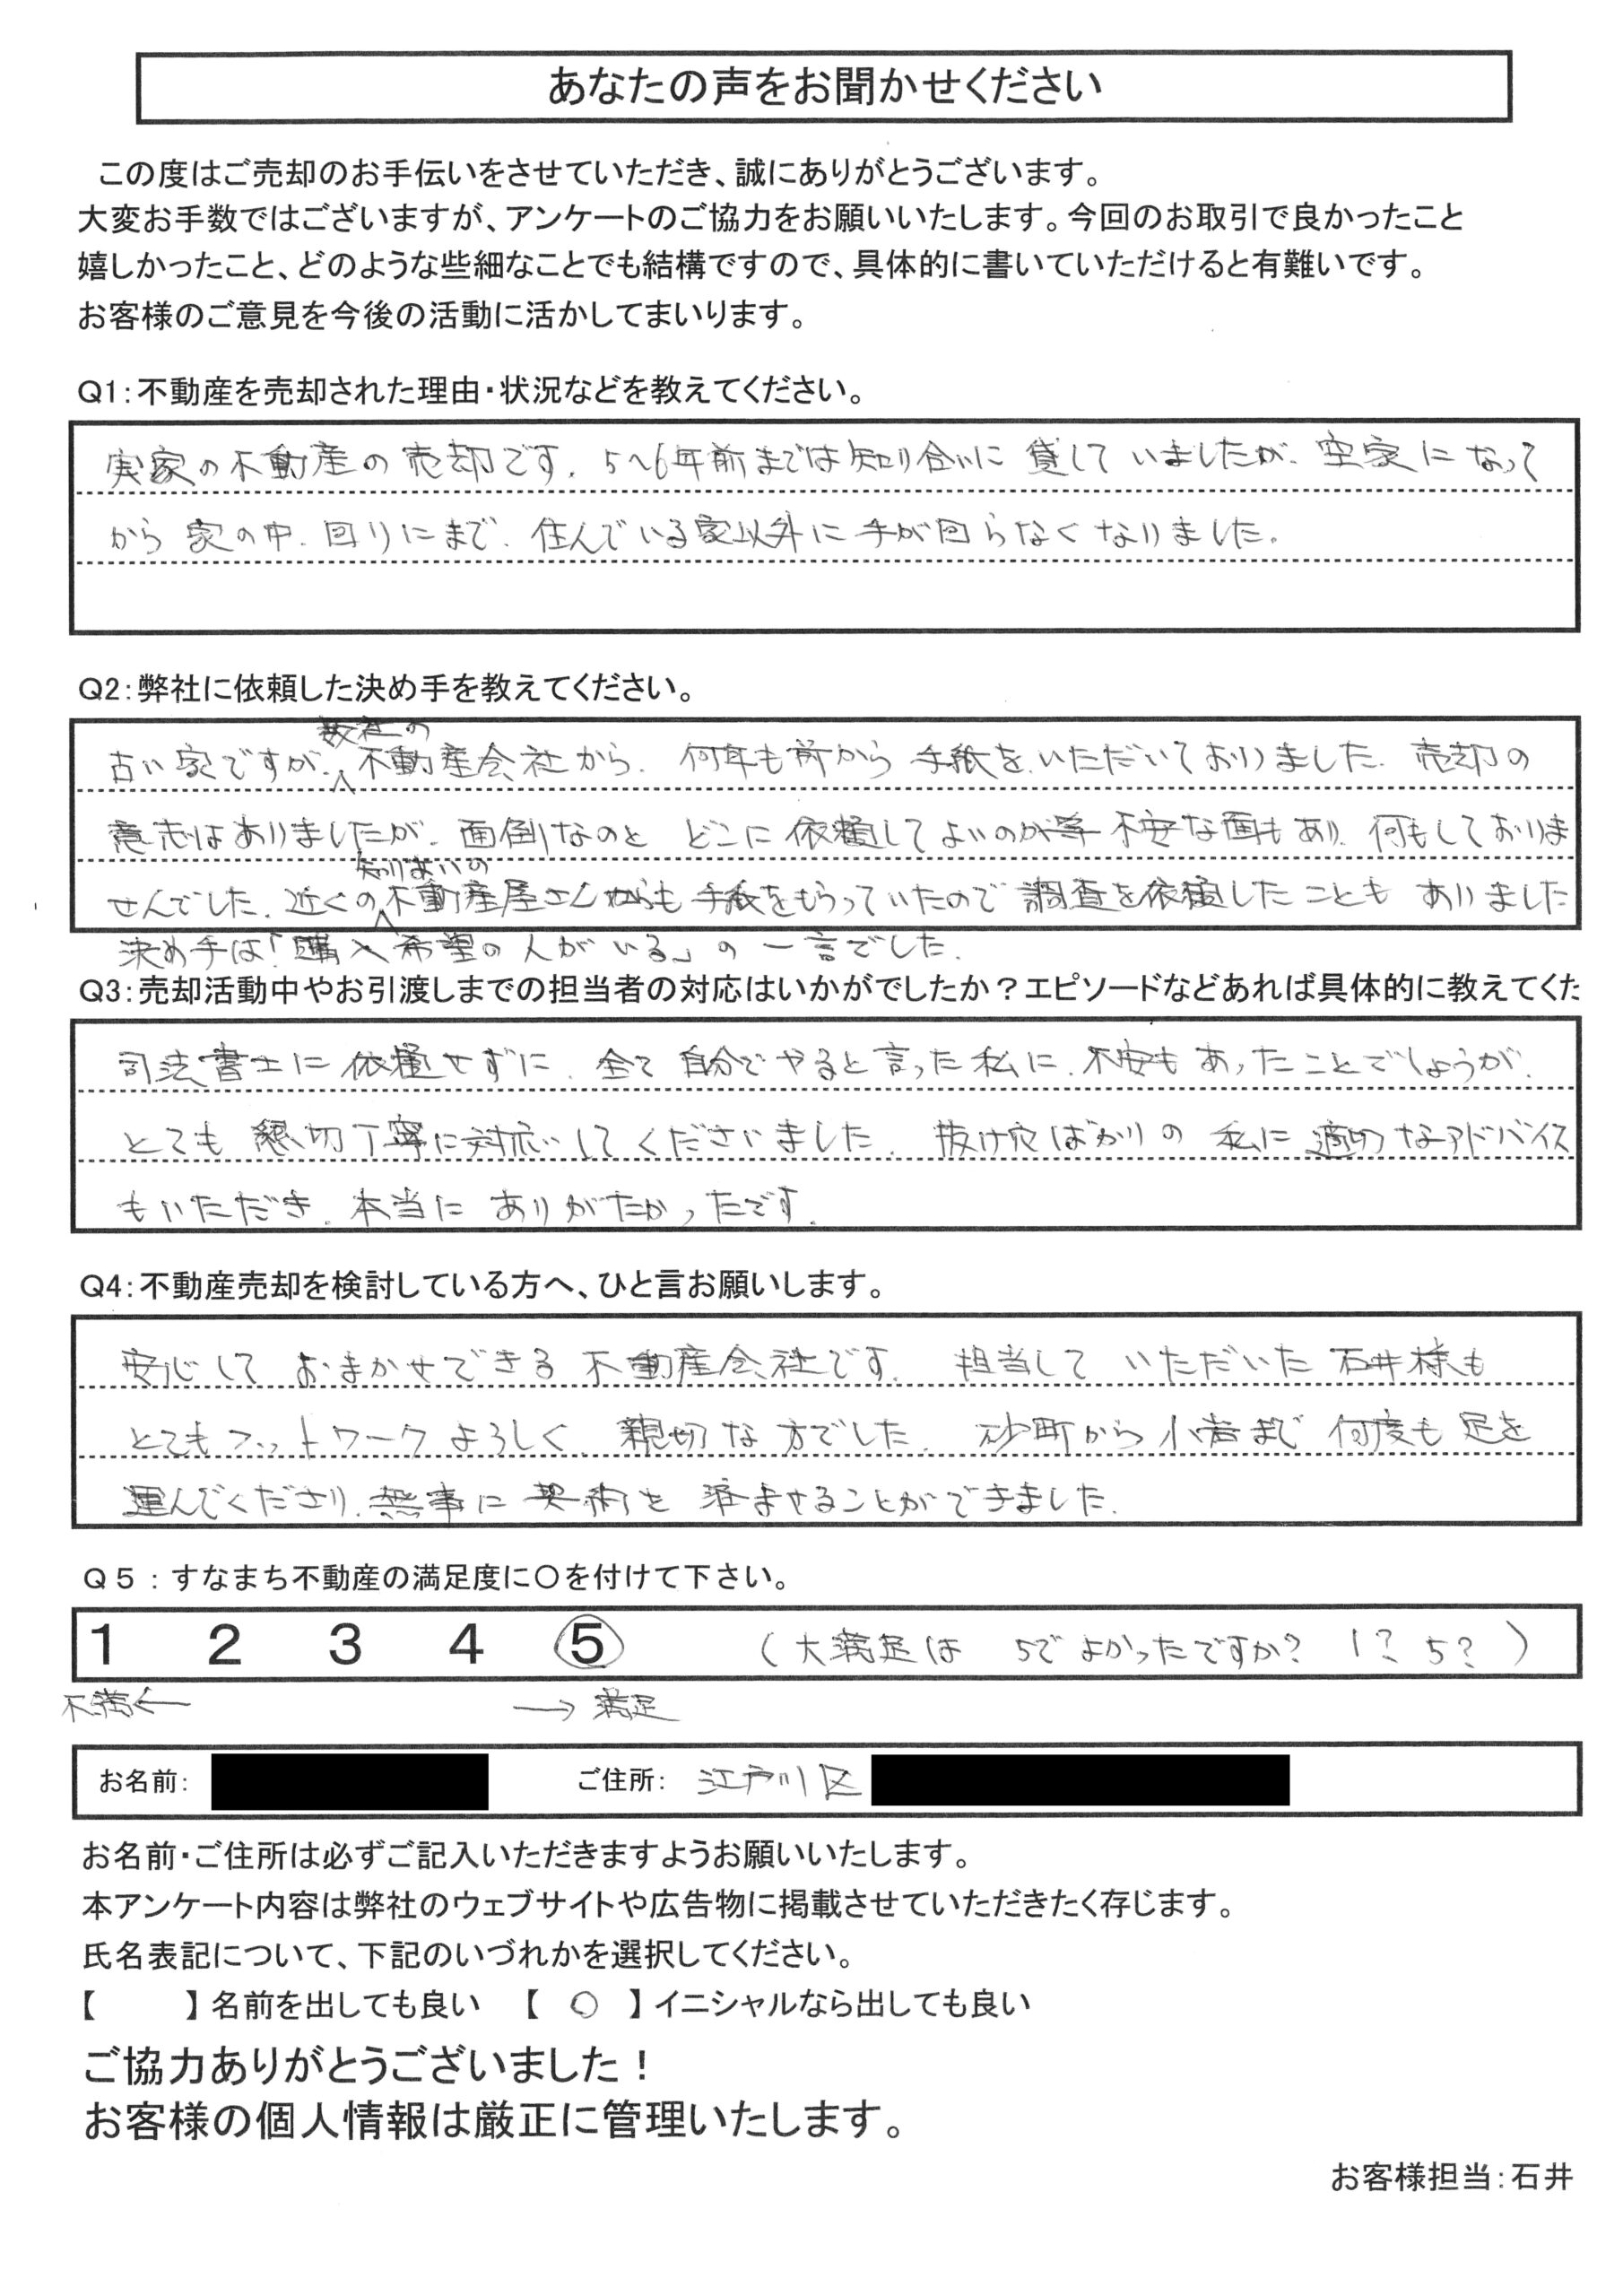 あなたの声をお聞かせください
この度はご売却のお手伝いをさせていただき、誠にありがとうございます。
大変お手数ではございますが、アンケートのご協力をお願いいたします。今回のお取引で良かったこと
嬉しかったこと、どのような些細なことでも結構ですので、具体的に書いていただけると有難いです。
お客様のご意見を今後の活動に活かしてまいります。
Q1：不動産を売却された理由・状況などを教えてください。
実家の不動産の売却です。5〜6年前までは知り合いに貸していましたが、空家になって
から家の中、回りにまで、住んでいる家以外に手が回らなくなりました。
Q2：弊社に依頼した決め手を教えてください。
古い家ですが、数社の不動産会社から、何年も前から手紙をいただいておりました。売却の
意志はありましたが、面倒なのと どこに依頼してよいのか等 不安な面もあり、何もしておりま
せんでした。近くの知りあいの不動産屋さんからも手紙をもらっていたので調査を依頼したこともありました
決め手は「購入希望の人がいる」の一言でした。
Q3：売却活動中やお引渡しまでの担当者の対応はいかがでしたか？エピソードなどあれば具体的に教えてくた
司法書士に依頼せずに、全て自分でやると言った私に、不安もあったことでしょうが、
とても懇切丁寧に対応してくださいました。抜け穴ばかりの私に適切なアドバイス
もいただき、本当にありがたかったです。
Q4：不動産売却を検討している方へ、ひと言お願いします。
安心しておまかせできる不動産会社です。担当していただいた石井様も
とてもフットワークよろしく、親切な方でした。砂町から小岩まで何度も足を
運んでくださり、無事に契約を済ませることができました。
Q５：すなまち不動産の満足度に〇を付けて下さい。
1 2 3 4 5 （大満足は 5でよかったですか？ 1？ 5？）
不満← → 満足
お名前： ご住所： 江戸川区
お名前・ご住所は必ずご記入いただきますようお願いいたします。
本アンケート内容は弊社のウェブサイトや広告物に掲載させていただきたく存じます。
氏名表記について、下記のいづれかを選択してください。
【 】名前を出しても良い 【 〇 】イニシャルなら出しても良い
ご協力ありがとうございました！
お客様の個人情報は厳正に管理いたします。
お客様担当：石井